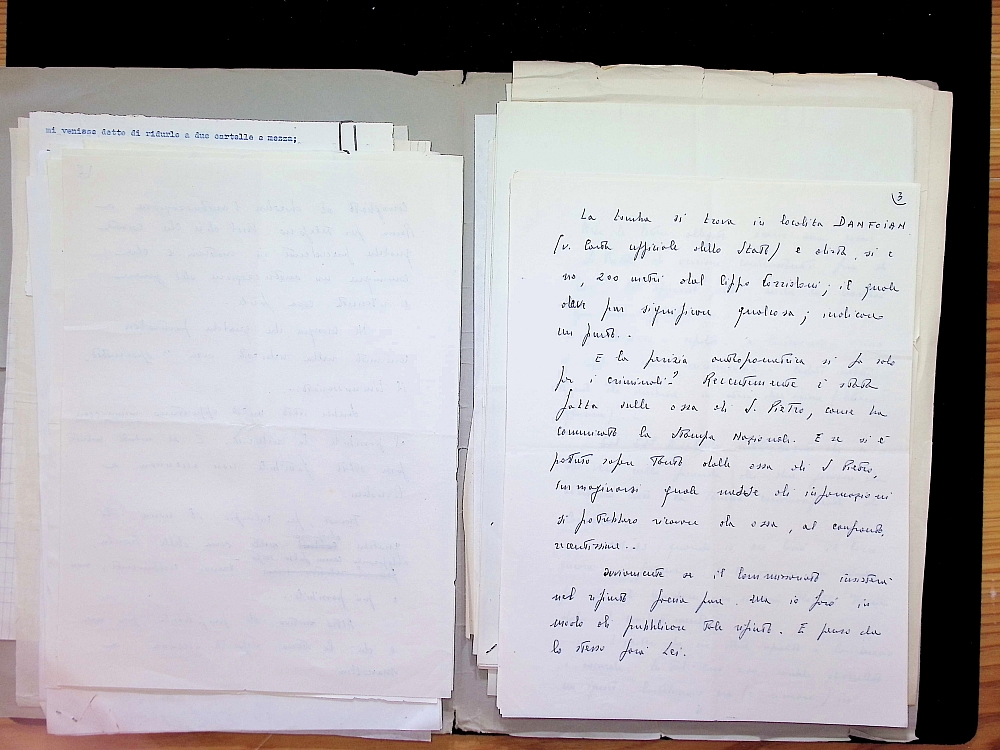 mi venisse detto di ridurle a due cartelle e mezza;
3
La tomba si trova in località DANFCIAN
(v. Carta ufficiale dello Stato) e dista, si e
no, 200 metri dal Cippo Cozzistoni; il quale
deve pur significare qualcosa; indicare
un punto..
E la perizia antropometrica si fa solo
per i criminali? Recentemente è stata
fatta sulle ossa di S. Pietro, come ha
comunicato la Stampa Nazionale. E se si è
potuto sapere tanto dalle ossa di S Pietro,
immaginarsi quale messe di informazioni
si potrebbero ricavare da ossa, al confronto,
recentissime..
Ovviamente se il Commissariato insisterà
nel rifiuto faccia pure. Ma io farò in
modo di pubblicare tale rifiuto. E penso che
lo stesso farà Lei.